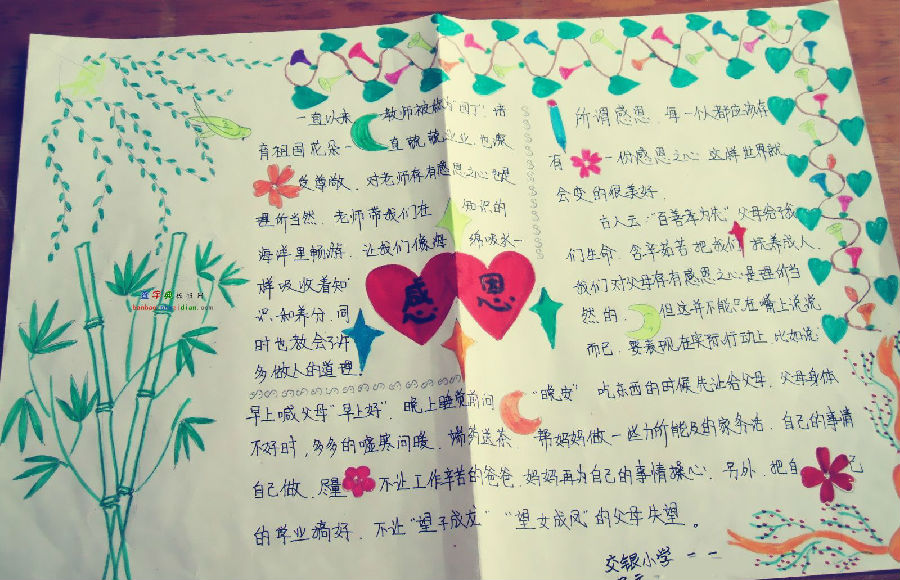 一直以来 教师被称"园丁"培
育祖国花朵一直兢兢业业,也深
受尊敬,对老师存有感恩之心也是
理所当然,老师带我们在 知识的
海洋里畅游,让我们像海 绵吸水一
样吸收着知
识、和养分,同
时也教会了许
多做人的道理。
感
恩
所谓感恩,每一个人都应该存
有 一份感恩之心,这样世界就
会变的很美好。
古人云:"百善孝为先"父母给予我
们生命,含辛茹苦把我们 抚养成人,
我们对父母存有感恩之心是理所当
然的。但这并不能只在嘴上说说
而已,要表现在实际行动上,比如说:
早上喊父母"早上好",晚上睡觉前问 "晚安" 吃东西的时候先让给父母,父母身体
不好时,多多的嘘寒问暖,端药送茶 帮妈妈做一些力所能及的家务活,自己的事情
自己做,尽量 不让工作辛苦的爸爸,妈妈再为自己的事情操心,另外,把自 己
的学业搞好,不让"望子成龙" "望女成凤"的父母失望。
交银小学